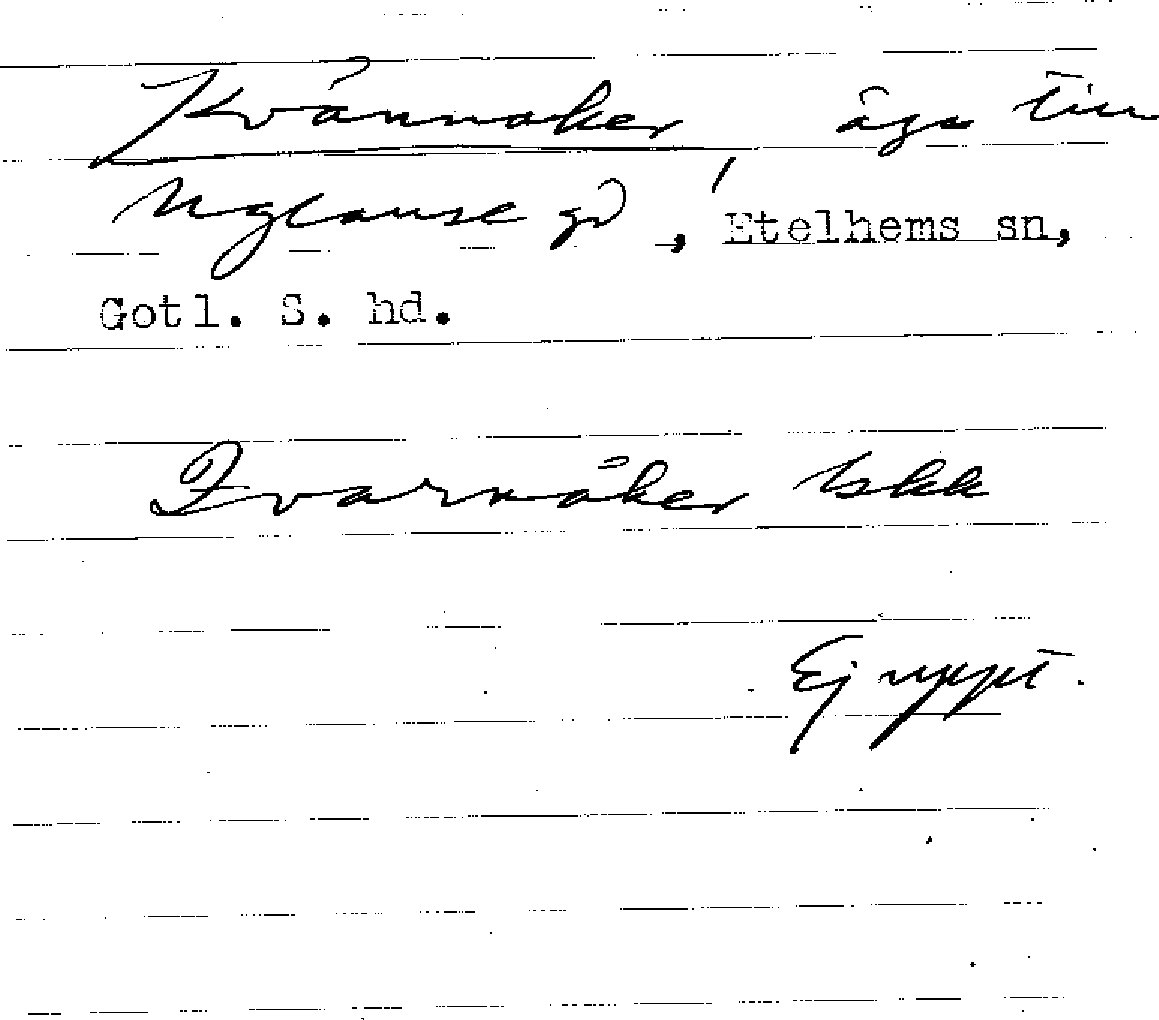 Kvännaker äga till
Uglause gd, Etelhems sn,
Gotl. S. hd.
Qvarnåker Iskk
Ej uppt.